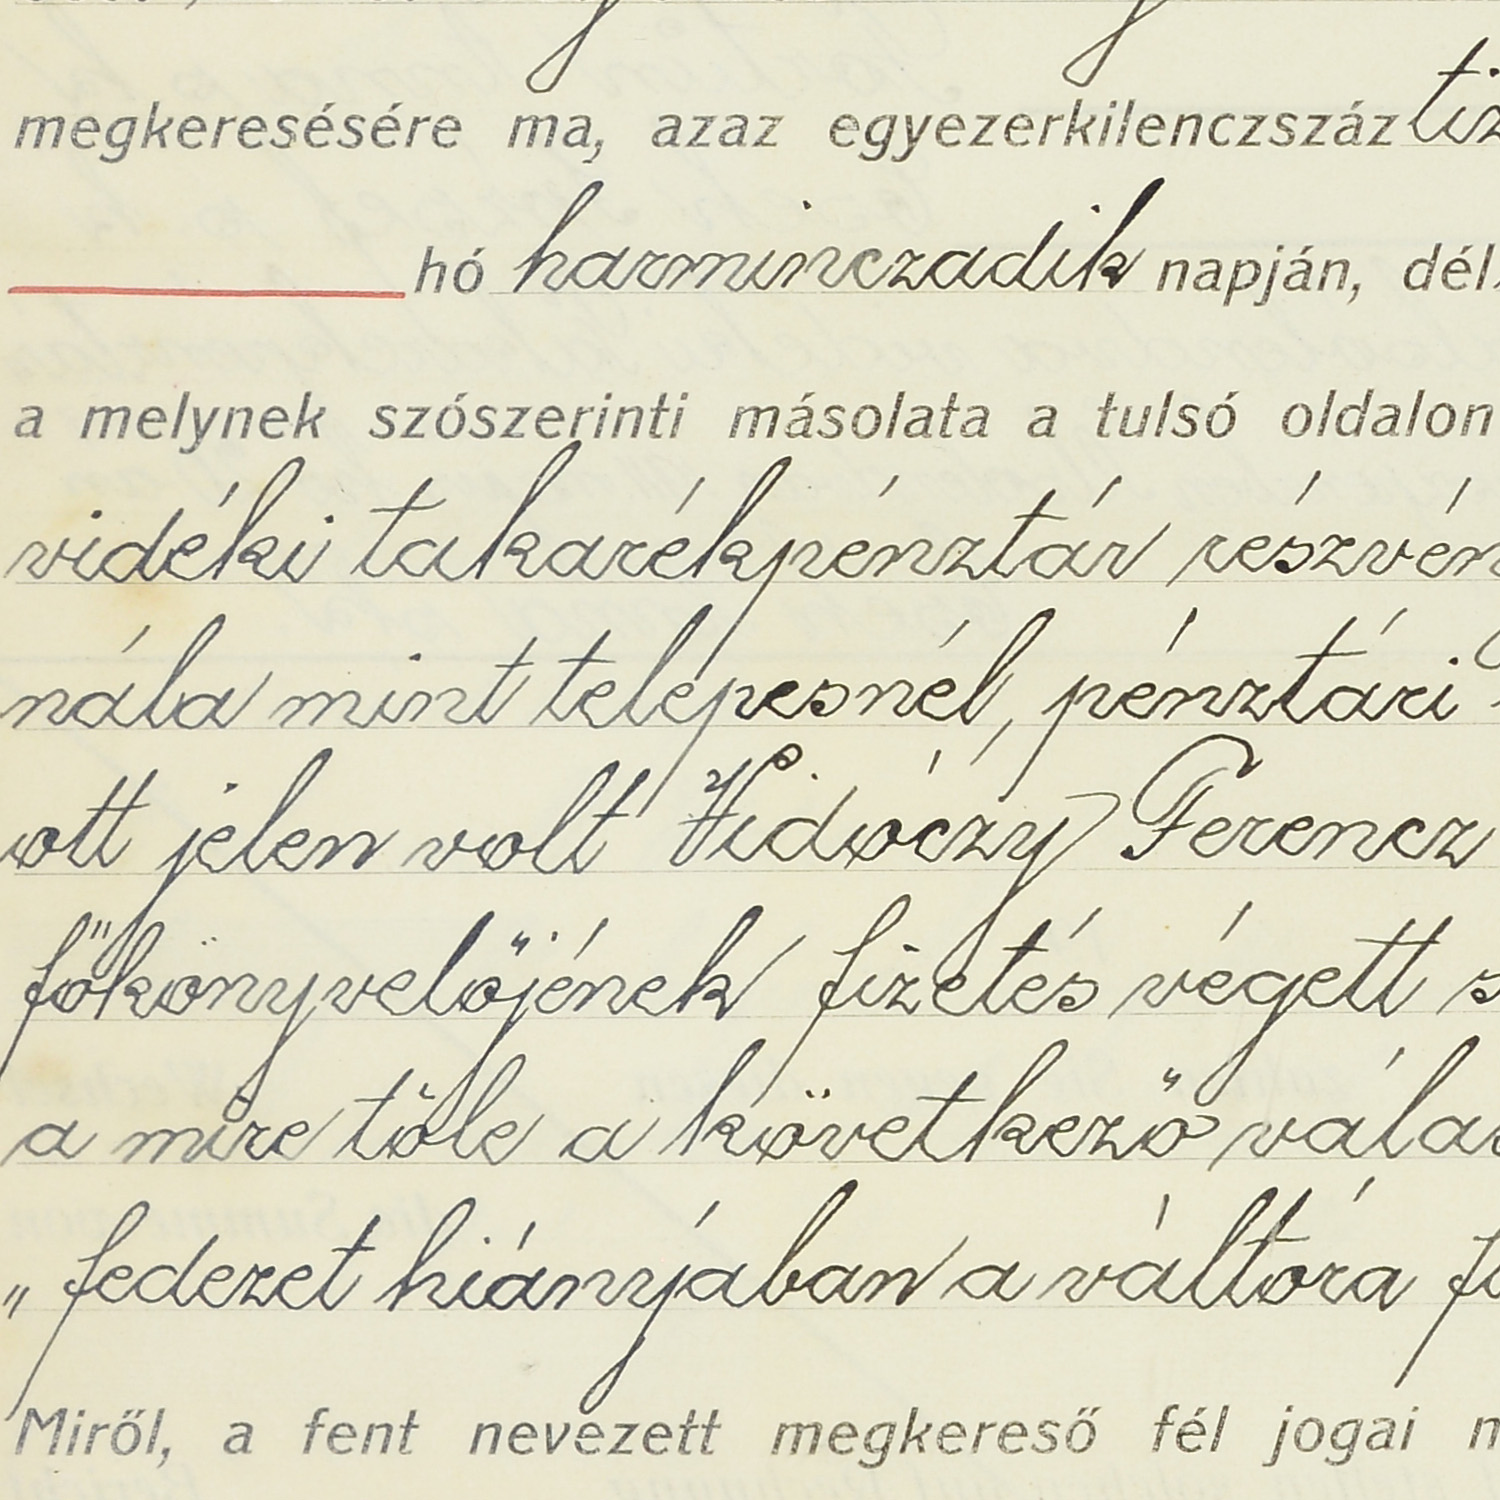 megkeresésére ma, azaz egyezerkilenczszáz tiz
hó harminczadik napján, dél
a melynek szószerinti másolata a tulsó oldalon
vidéki takarékpénztár részvén
nála mint telepesnél, pénztári
ott jelen volt Vidóczy Ferencz
főkönyvelőjének fizetés végett
a mire tőle a következő válas
„fedezet hiányában a váltóra
Miről, a fent nevezett megkereső fél jogai